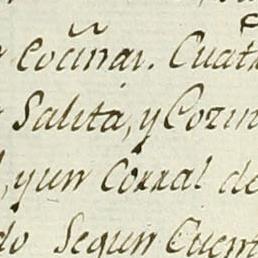 Cocinar. Cuat
Salita, y Cozin
, y un Corral de
do Segun Cuent